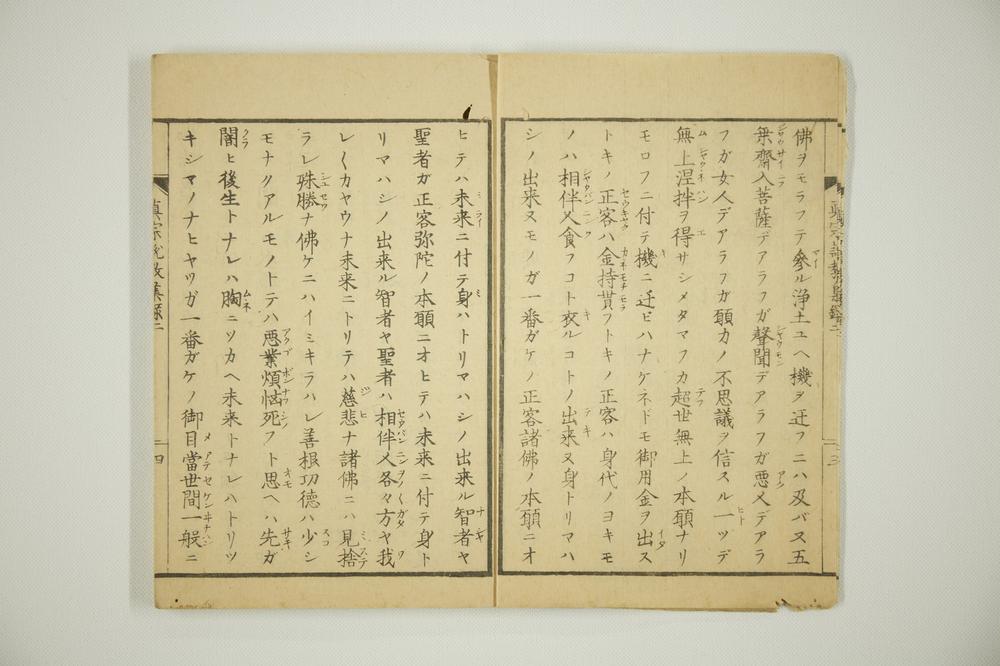 佛ヲモラフテ參ル浄土ユヘ機ヲ迁フニハ及バス五
無齋入菩薩デアラフガ聲聞デアラフガ悪人デアラ
フガ女人デアラフガ願力ノ不思議ヲ信スル一ツデ
無上涅拌ヲ得サシメタマフカ超世無上ノ本願ナリ
モロフニ付テ機ニ迁ビハナケネドモ御用金ヲ出ス
トキノ正客ハ金持貰フトキノ正客ハ身代ノヨキモ
ノハ相伴人食フコト衣ルコトノ出来ヌ身トリマハ
シノ出来ヌモノガ一番ガケノ正客諸佛ノ本願ニオ
ヒテハ未来ニ付テ身ハトリマハシノ出来ル智者ヤ
聖者ガ正客弥陀ノ本願ニオヒテハ未来ニ付テ身ト
リマハシノ出来ル智者ヤ聖者ハ相伴人各々方ヤ我
レ〱カヤウナ未来ニトリテハ慈悲ナ諸佛ニハ見捨
ラレ殊勝ナ佛ケニハイミキラハレ善根功德ハ少シ
モナクアルモノトテハ悪業煩悩死フト思ヘハ先ガ
闇ヒ後生トナレハ胸ニツカヘ未来トナレハトリツ
キシマノナヒヤツガ一番ガケノ御目當世間一般ニ
二 四